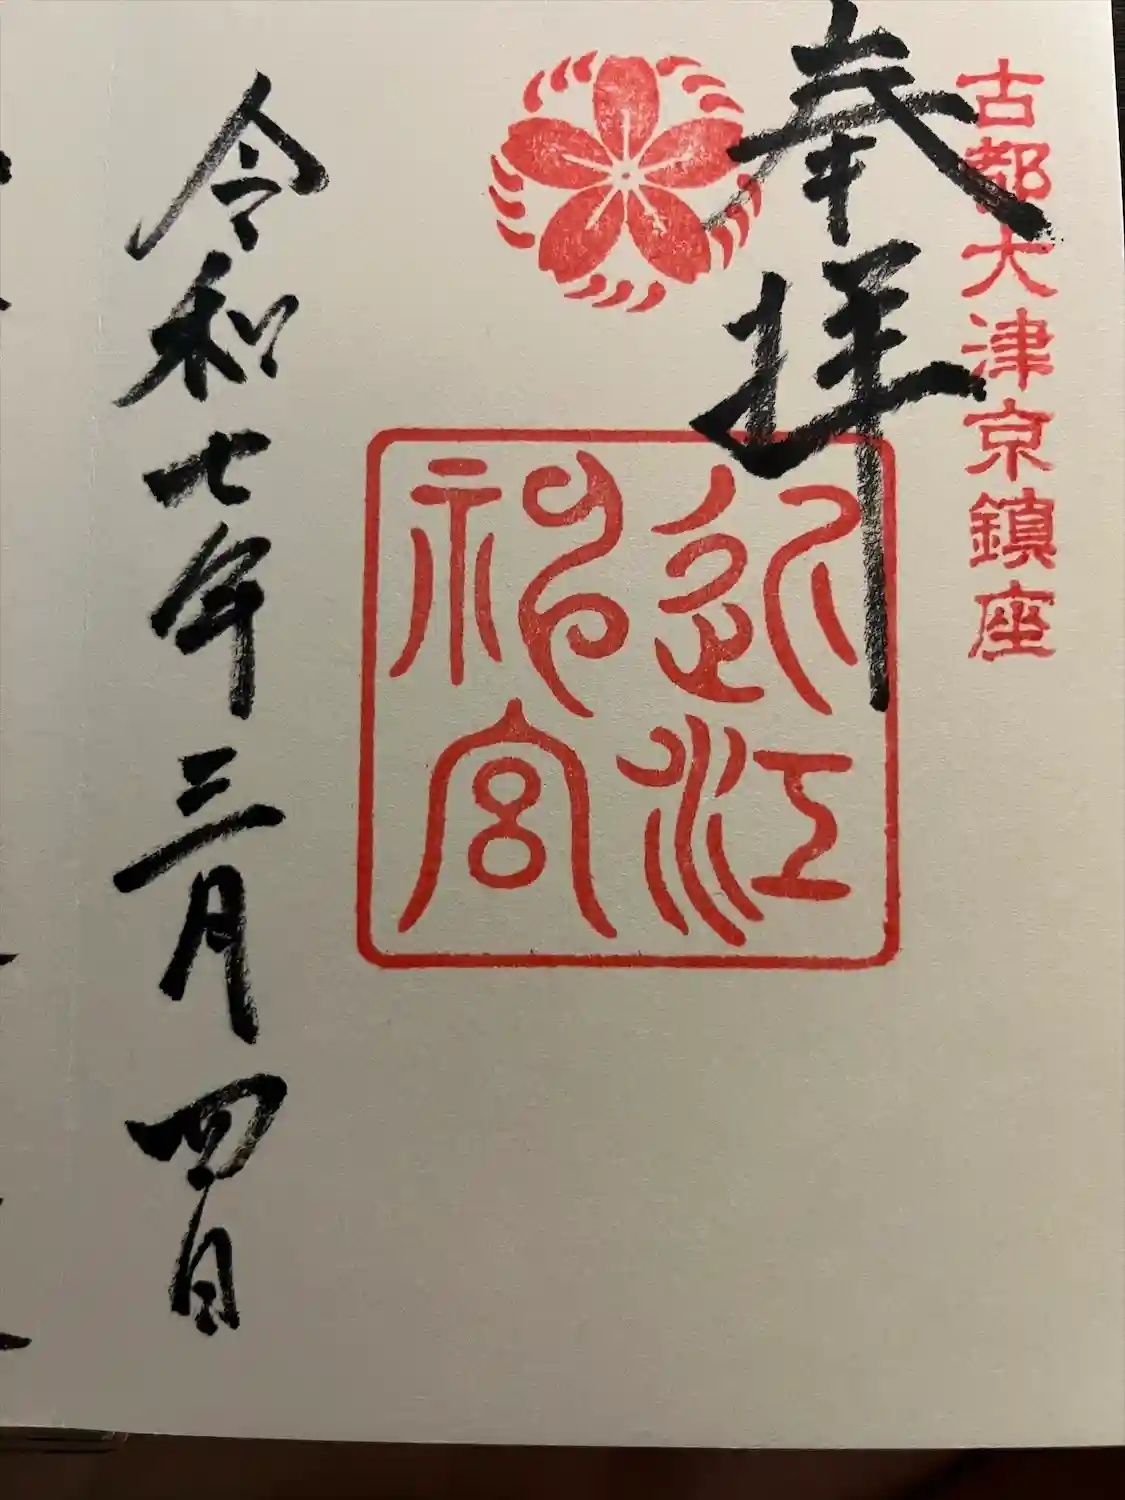 古都大津京鎮座
奉拝
近江神宮
令和七年三月四日